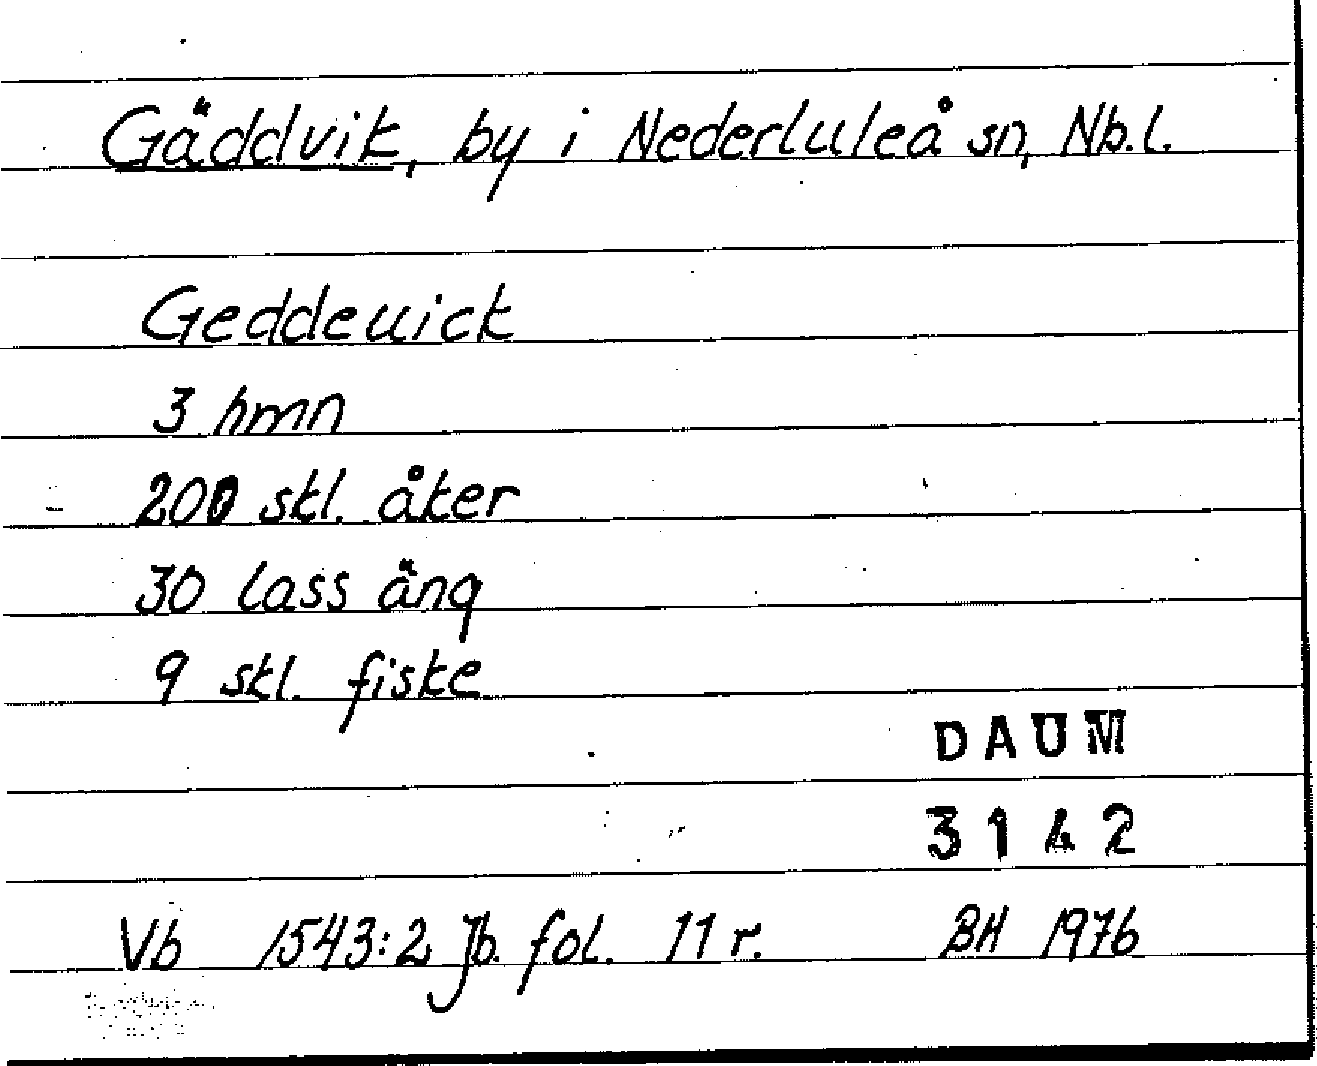 Gäddvik, by i Nederluleå sn, Nb.l.
Geddeuick
3 hmn
200 skl. åker
30 lass äng
9 skl. fiske
DAUM
3142
Vb 1543:2 Jb. fol. 11 r. BH 1976